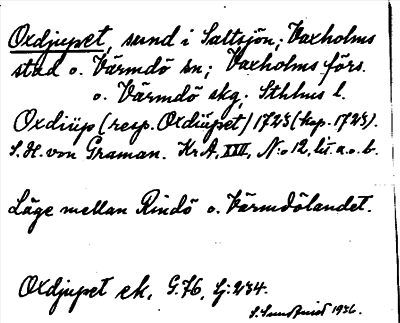 Oxdjupet, sund i Saltsjön; Vaxholms
stad o. Värmdö sn; Vaxholms förs.
o. Värmdö skg; Sthlms l.
Oxdiüp (resp. Oxdiüpet) 1723 (kop. 1723).
S. H. von Graman. KrA, XXII, N:o 12, lit. a. o. b.
Läge mellan Rindö o. Värmdölandet.
Oxdjupet ek. G. 76, Lj: 234.
1936.